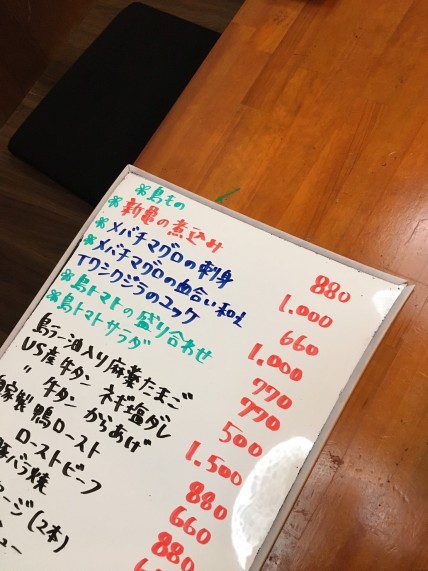 ※島もの
※新亀の煮込み 880
※メバチマグロの刺身 1.000
※メバチマグロの血合い和え 660
イワシクジラのユッケ 1.000
※島トマトの盛り合わせ 770
※島トマトサラダ 770
島ラー油入り麻薬たまご 500
US産牛タン ネギ塩ダレ 1.500
〃 牛タン からあげ 880
家製 鴨ロースト 660
ローストビーフ 880
豚バラ焼
ージ(2本)
ュー